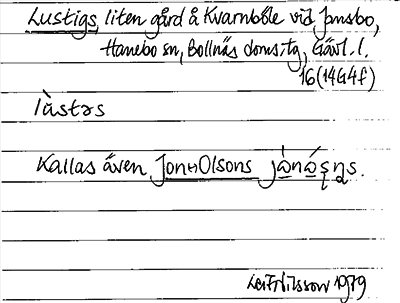 Lustigs, liten gård å Kvarnböle vid Jonsbo,
Hanebo sn, Bollnäs doms.tg, Gävl. l.
16 (14G4f)
lùstəs
Kallas även Jon-Olsons
Leif Nilsson 1979